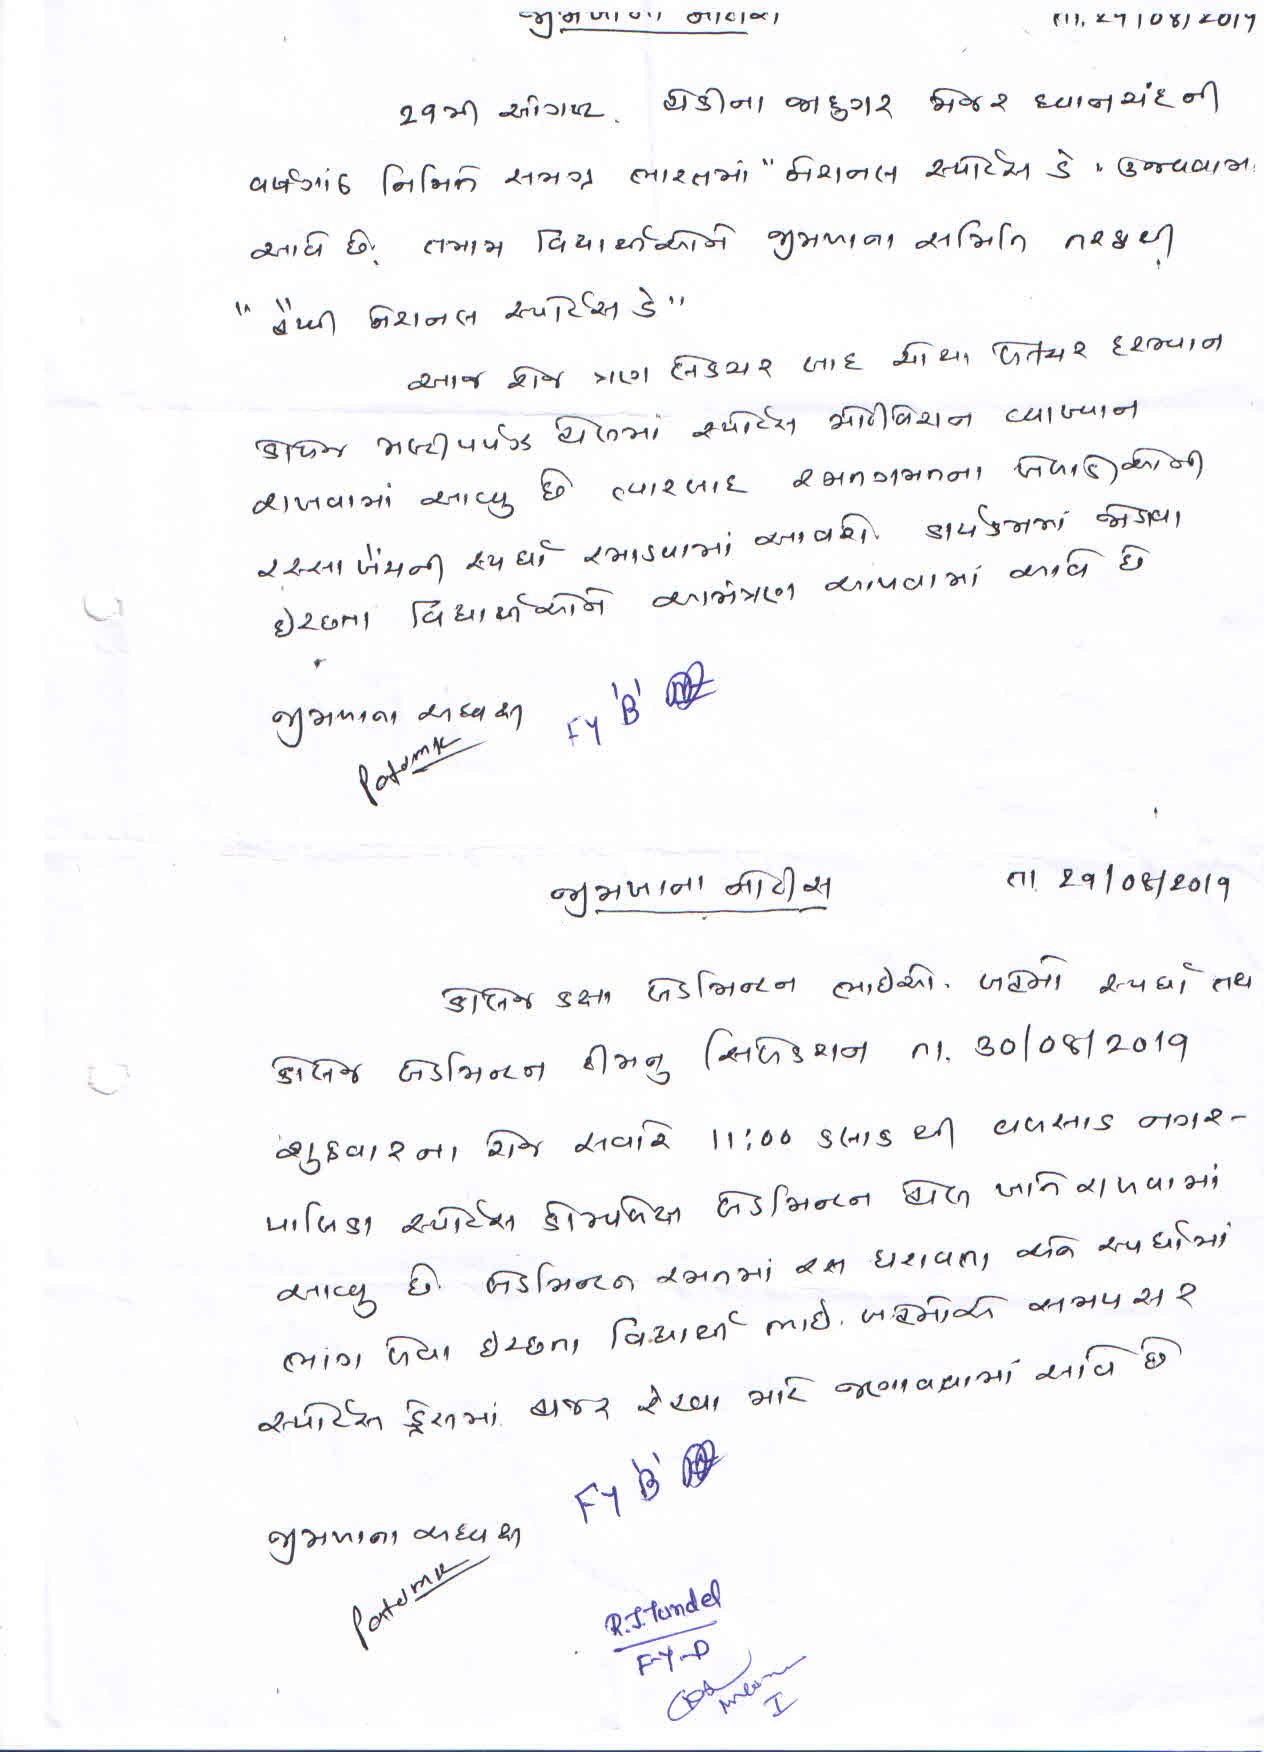 જીમખાના નોટીસ તા. ૨૯/૦૮/૨૦૧૯
૨૯મી ઓગષ્ટ. હોકીના જાદુગર મેજર ધ્યાનચંદની
વર્ષગાંઠ નિમિત્તે સમગ્ર ભારતમાં "નેશનલ સ્પોર્ટસ ડે" ઉજવવામાં
આવે છે. તમામ વિદ્યાર્થીઓને જીમખાના સમિતિ તરફથી
"હેપ્પી નેશનલ સ્પોર્ટસ ડે"
આજ રોજ ત્રણ લેકચર બાદ ચોથા લેકચર દરમ્યાન
કોલેજ મલ્ટીપર્પઝ હોલમાં સ્પોર્ટસ મોટીવેશન વ્યાખ્યાન
રાખવામાં આવ્યુ છે ત્યારબાદ રમતગમતના ખેલાડીઓની
રસ્સા ખેંચની સ્પર્ધા રમાડવામાં આવશે. કાર્યક્રમમાં જોડાવા
ઈચ્છતા વિદ્યાર્થીઓને આમંત્રણ આપવામાં આવે છે
જીમખાના અધ્યક્ષ FY 'B'
Patelmk
જીમખાના નોટીસ તા. ૨૯/૦૮/૨૦૧૯
કોલેજ કક્ષા બેડમિન્ટન ભાઈઓ. બહેનો સ્પર્ધા તથા
કોલેજ બેડમિન્ટન ટીમનુ સિલેકશન તા. ૩૦/૦૮/૨૦૧૯
શુક્રવારના રોજ સવારે 11:00 કલાકથી વલસાડ નગર-
પાલિકા સ્પોર્ટસ કોમ્પલેક્ષ બેડમિન્ટન હોલ ખાતે રાખવામાં
આવ્યુ છે. બેડમિન્ટન રમતમાં રસ ધરાવતા અને સ્પર્ધામાં
ભાગ લેવા ઈચ્છતા વિદ્યાર્થી ભાઈ. બહેનોએ સમયસર
સ્પોર્ટસ ડ્રેસમાં હાજર રહેવા માટે જણાવવામાં આવે છે
FY 'B'
જીમખાના અધ્યક્ષ
Patelmk
R.J.Tandel
F-Y-D
I